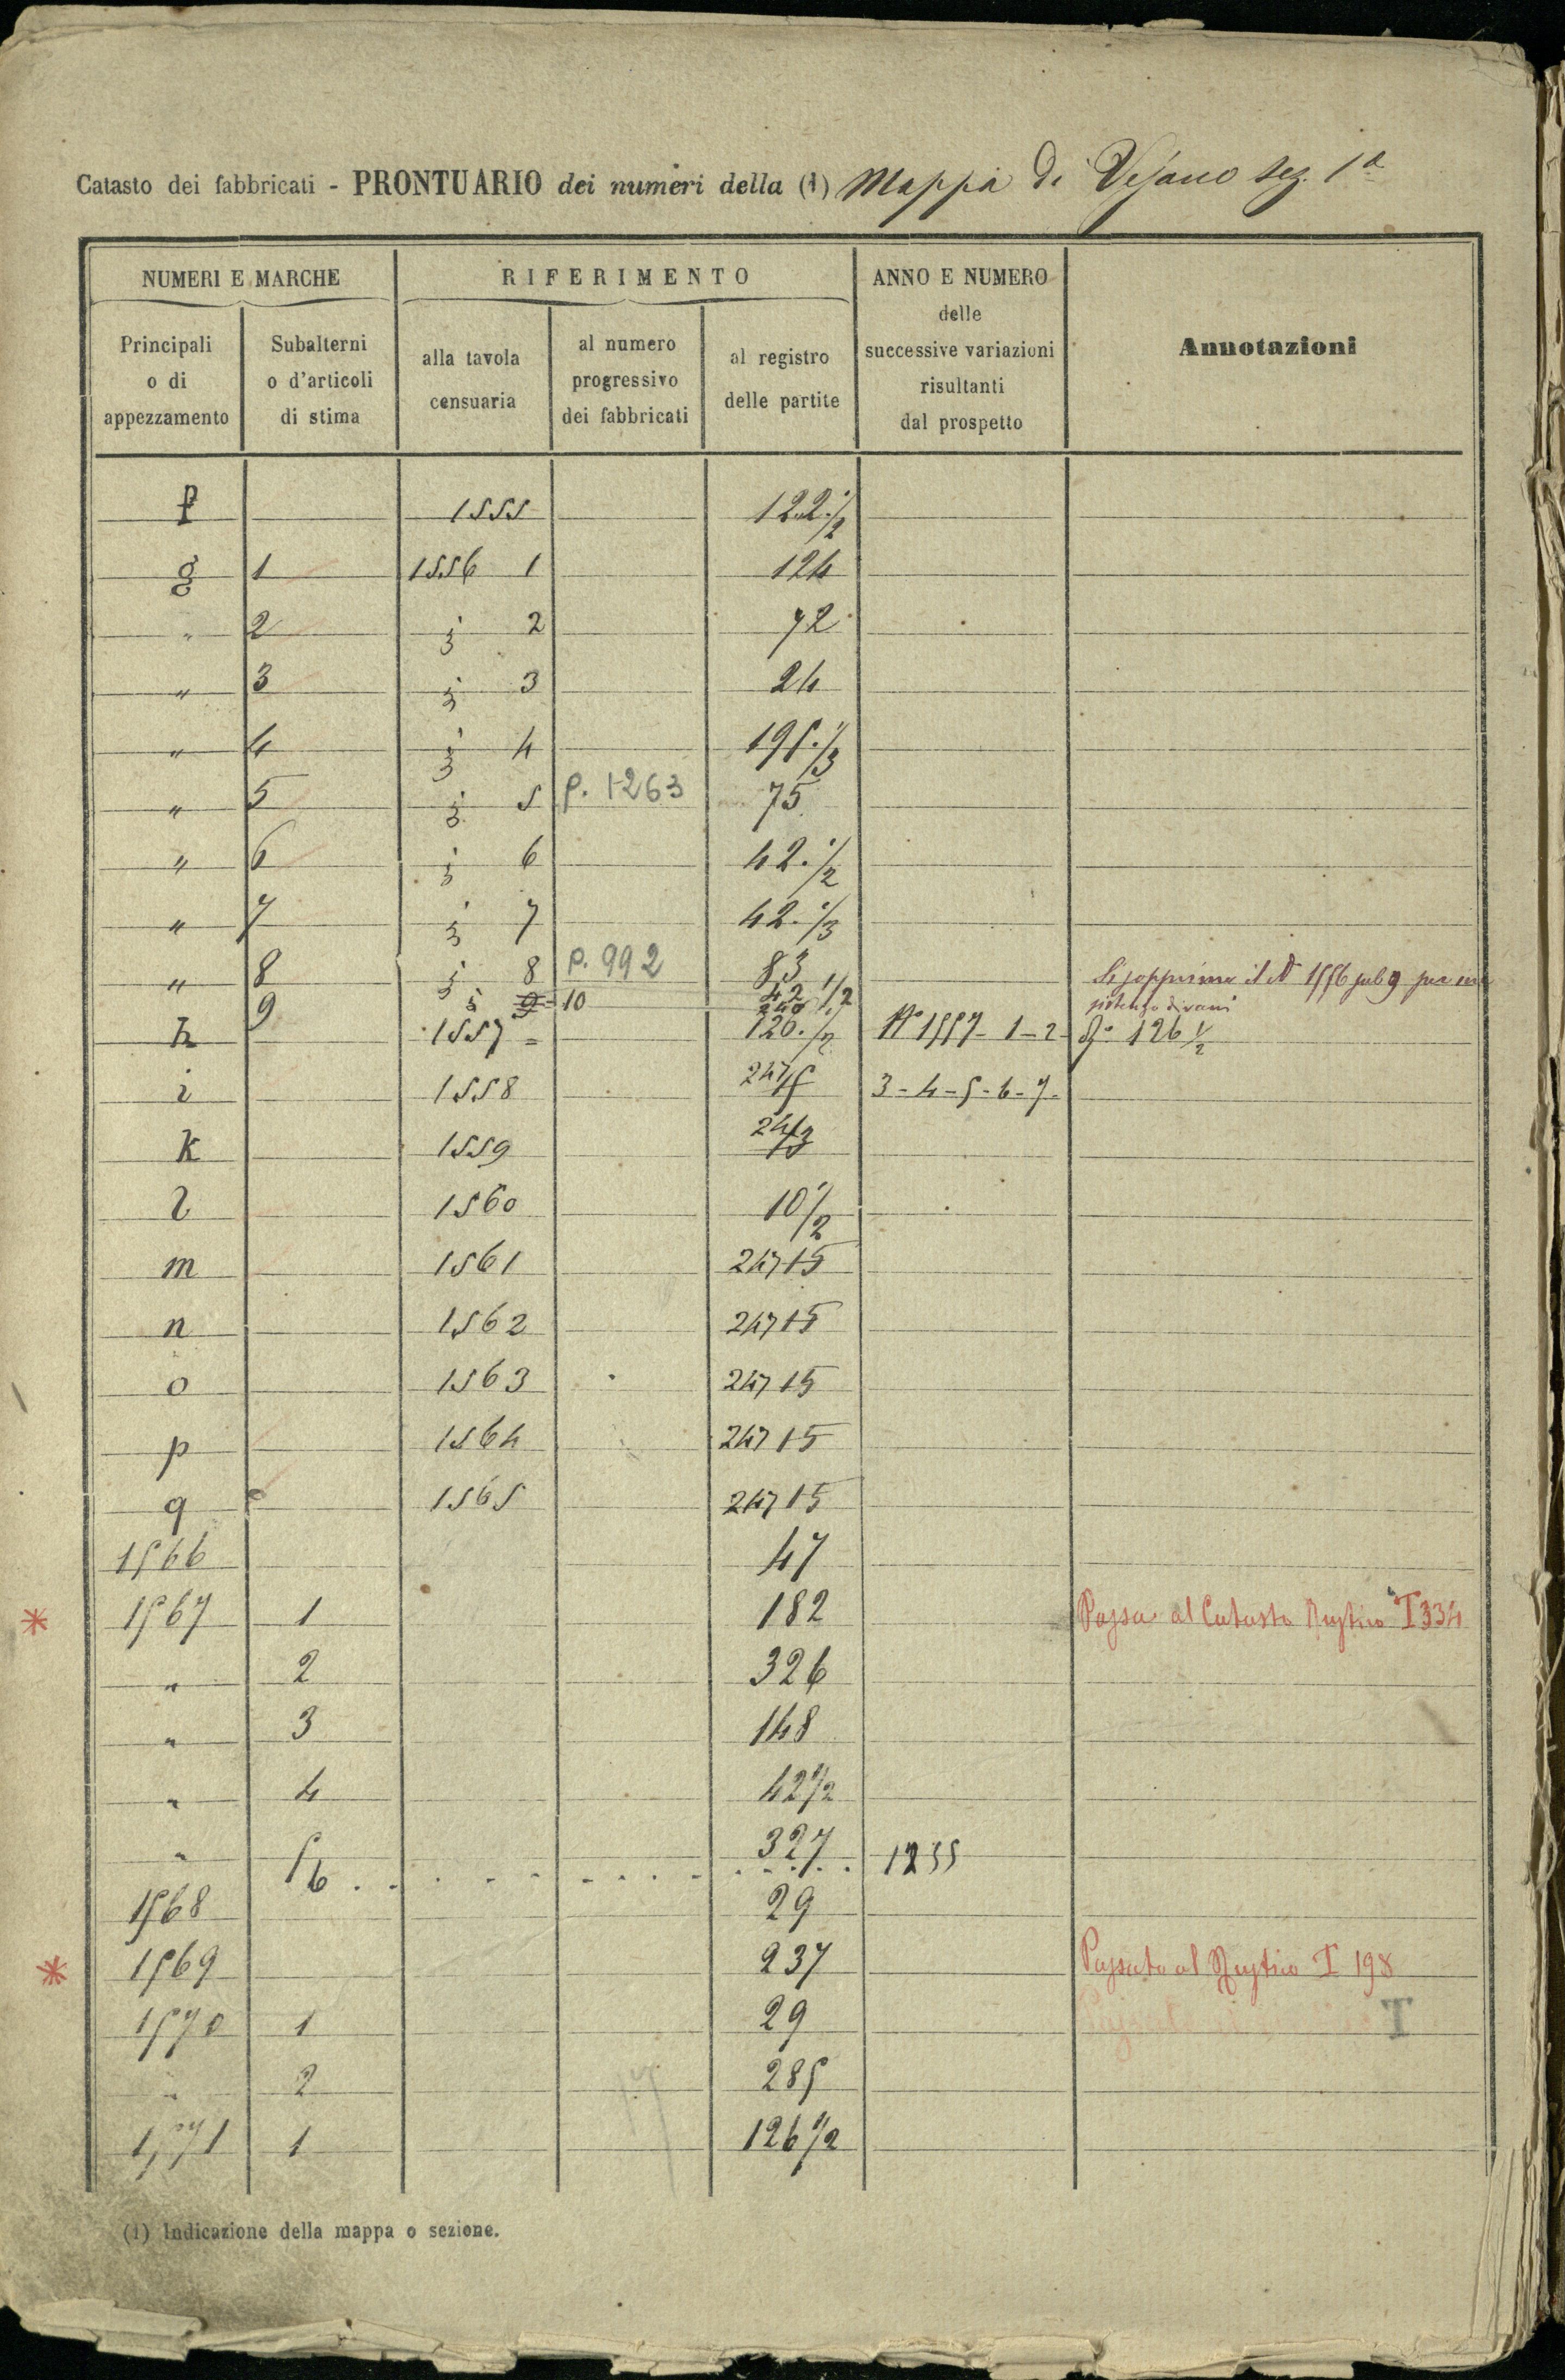 Catasto dei fabbricati - PRONTUARIO dei numeri della (1) Mappa di Vejano Sez. 1ª
NUMERI E MARCHE RIFERIMENTO ANNO E NUMERO delle successive variazioni risultanti dal prospetto Annotazioni
Principali o di appezzamento Subalterni o d'articoli di stima alla tavola censuaria al numero progressivo dei fabbricati al registro delle partite
f 1555 122.1/2
g 1 1556 1 124
" 2 " 2 72
" 3 " 3 24
" 4 " 4 195.1/3
" 5 " 5 P. 1263 75
" 6 " 6 42.1/2
" 7 " 7 42.1/3
" 8 " 8 P. 992 83 Si sopprime il N 1556 sub 9 per
9 " 9 10 42 1/2
h 1557 = 126.1/2 N° 1557 - 1 - 2 - 126 1/2
i 1558 247/5 3 - 4 - 5 - 6 - 7 -
k 1559
l 1560 10 1/2
m 1561 247 15
n 1562 247 15
o 1563 247 15
p 1564 247 15
q 1565 247 15
1566 47
* 1567 1 182 Passa al Catasto Rustico T 334
" 2 326
" 3 148
" 4 42 1/2
" 5 327
6 . . . . . . . . 1255
1568 29
* 1569 237 Passato al Rustico T 198
1570 1 29 T
" 2 285
1571 1 126 1/2
(1) Indicazione della mappa o sezione.